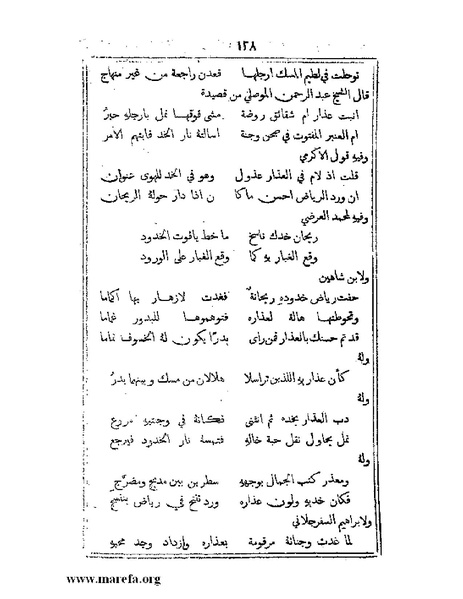 ١٢٨
توحلت في لطيم المسك ارجلها فعدن راجعة من غير منهاج
قال الشيخ عبد الرحمن الموصلي من قصيدة
انبت عذار ام شقائق روضة مشى فوقها نمل بارجله حبرُ
ام العنبر المفتوت في صحن وجنة اسالته نار الخد فابهم الامر
وفيه قول الاكرمي
قلت اذ لام في العذار عذول وهو في الخد للهوى عنوان
ان ورد الرياض احسن ماكا ن اذا دار حولهُ الريحان
وفيه لمحمد العرضي
ريحان خدك ناسخ ما خط ياقوت الخدود
وقع الغبار بهِ كما وقع الغبار على الورود
ولابن شاهين
حفت رياض خدودهِ ريحانةٌ فغدت لازهار بها اكماما
وتحوطتها هالة لعذاره فتوهموها للبدور غماما
قد تم حسنك بالعذار فمن راى بدرًا يكون لهُ الخسوف تماما
ولهُ
كأن عذاريهِ اللذين تراسلا هلالان من مسك وبينهما بدرُ
ولهُ
دب العذار بخده ثم انثنى فكانهُ في وجنتيهِ مروع
نمل يحاول نقل حبة خالهِ فتمسهُ نار الخدود فيرجع
ولهُ
ومعذر كتب الجمال بوجههِ سطرين بين مدبج ومضرَّج
فكان خديهِ ولون عذاره ورد تفتح في رياض بنفسجِ
ولابراهيم السفرجلاني
لما غدت وجناتهُ مرقومة بعذاره وازداد وجد محبهِ
www.marefa.org